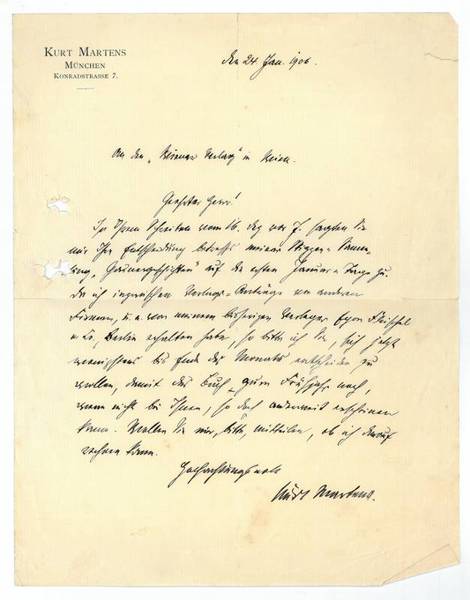 KURT MARTENS
MÜNCHEN
KONRADSTRASSE 7.
den 24 Jan. 1906.
An den „Wiener Verlag" in Wien.
Geehrter Herr!
In Ihrem Schreiben vom 16. Dez. vor. J. sagten Sie
mir Ihre Entscheidung betreffs meiner Skizzen-Samm-
lung „Gaunergeschichten" auf die ersten Januar-Tage zu.
Da ich inzwischen Verlags-Anträge von anderen
Firmen, u. a. von meinem bisherigen Verleger Egon Fleischel
u. Co. Berlin erhalten habe, so bitte ich Sie, sich jetzt
wenigstens bis Ende des Monats entscheiden zu
wollen, damit das Buch zum Frühjahr noch,
wenn nicht bei Ihnen, so doch anderweit erscheinen
kann. Wollen Sie mir, bitte, mitteilen, ob ich darauf
rechnen kann.
Hochachtungsvoll
Kurt Martens.